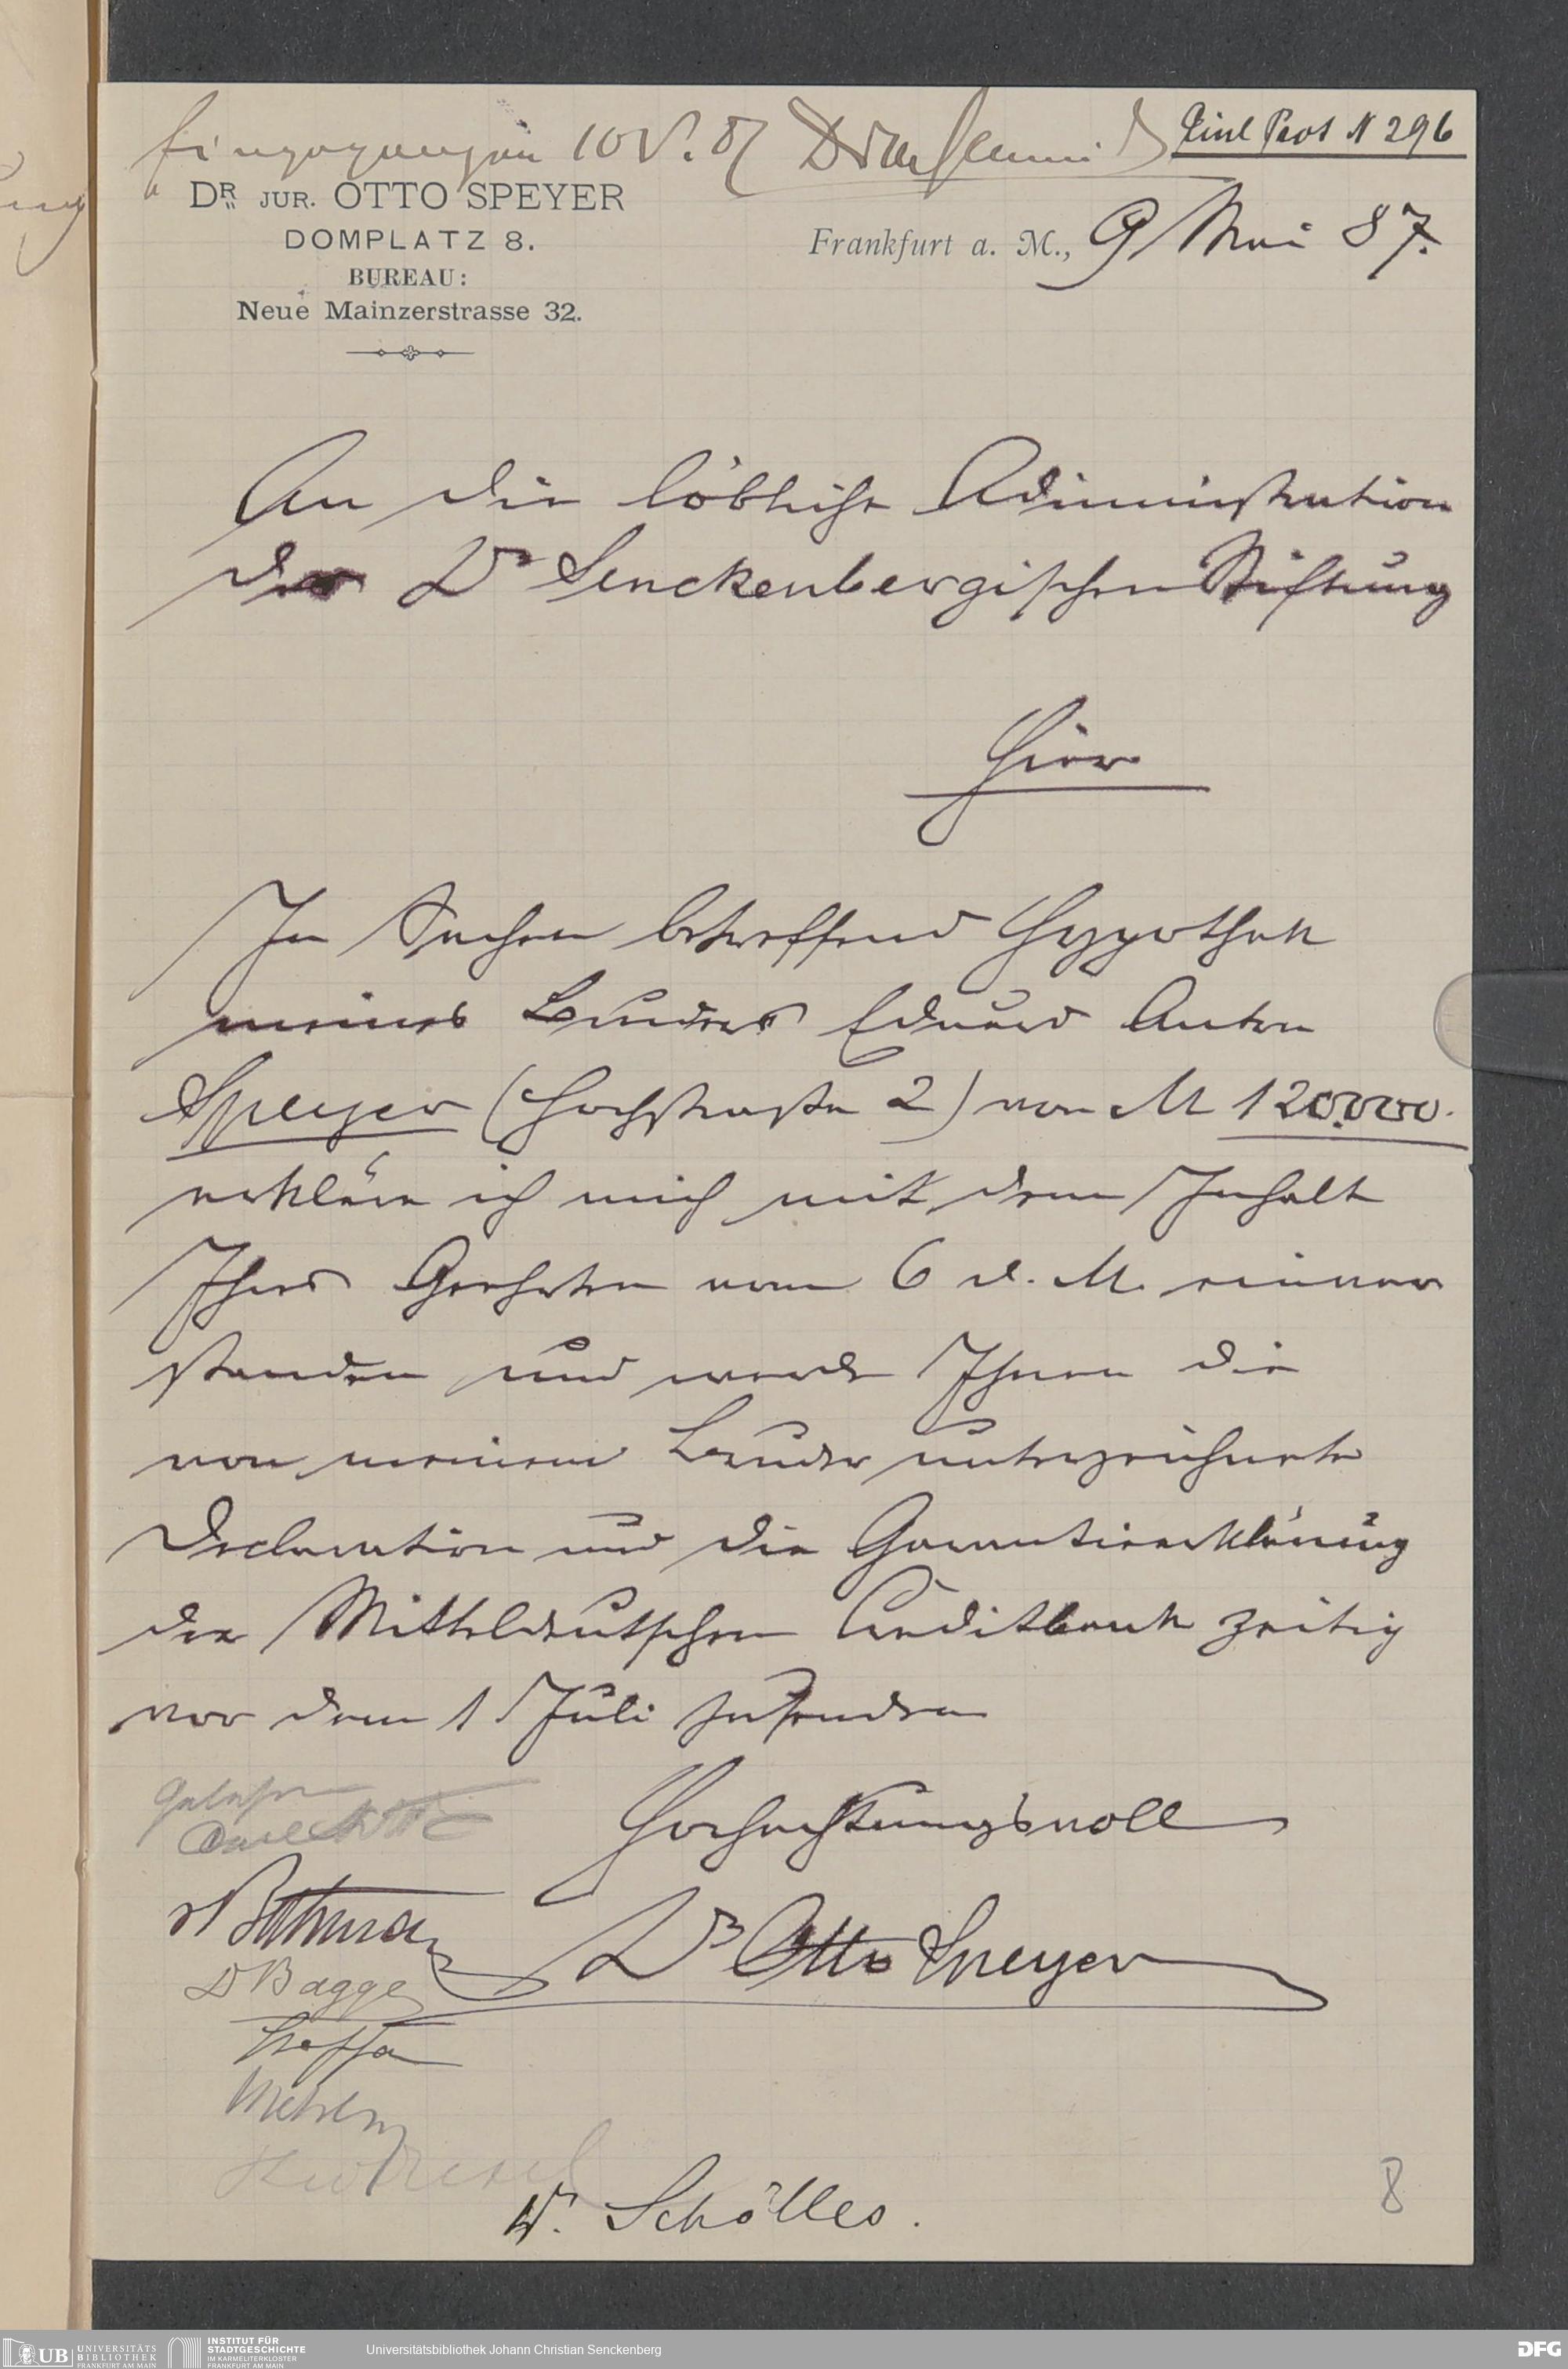 Eingegangen 10 V. 87
Einl Prot N 296
DR. JUR. OTTO SPEYER
DOMPLATZ 8.
BUREAU:
Neue Mainzerstrasse 32.
Frankfurt a. M., 9 Mai 87.
An die löbliche Administration
der Dr Senckenbergischen Stiftung
Hier
In Sachen betreffend Hypothek
meines Bruders Eduard Anton
Speyer (Hochstraße 2) von M 120.000.
erkläre ich mich mit dem Inhalt
Ihres Geehrten vom 6 d. M. einver
standen und werde Ihnen die
von meinem Bruder unterzeichnete
Declaration und die Garantieerklärung
der Mitteldeutschen Creditbank zeitig
vor dem 1 Juli zusenden
Hochachtungsvoll
Dr Otto Speyer
Gelesen
Dr Bagge
Dr. Schölles.
8
UB UNIVERSITÄTS
BIBLIOTHEK
FRANKFURT AM MAIN
INSTITUT FÜR
STADTGESCHICHTE
IM KARMELITERKLOSTER
FRANKFURT AM MAIN
Universitätsbibliothek Johann Christian Senckenberg
DFG